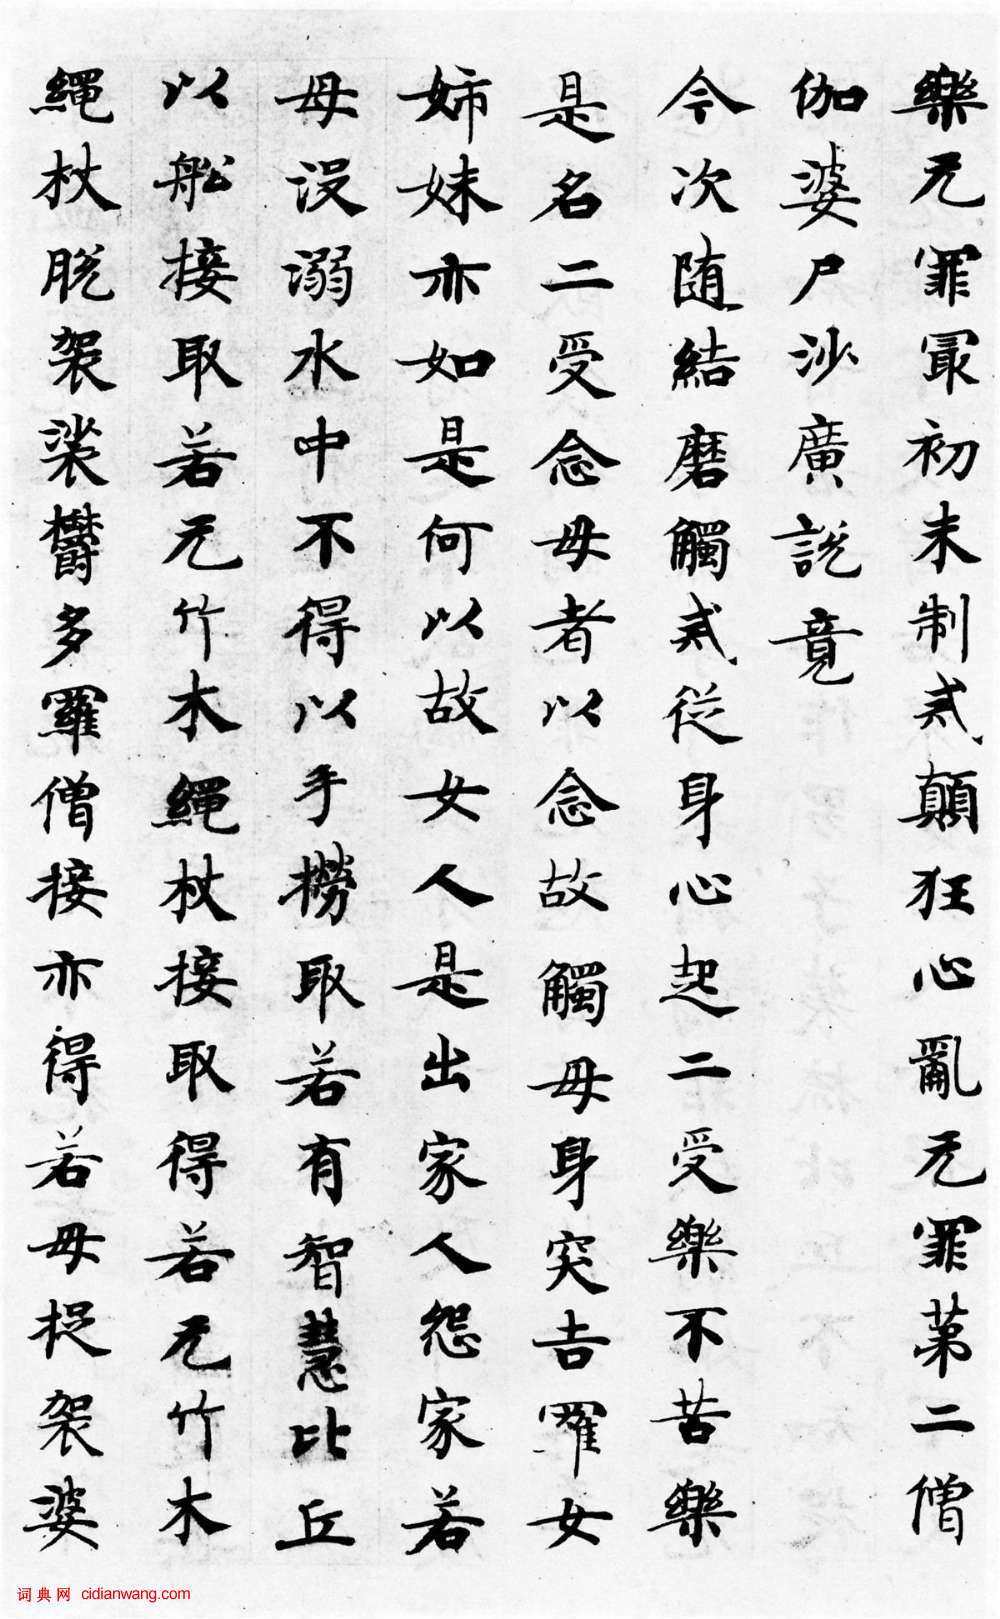 樂无罪冣初未制戒顛狂心亂无罪第二僧
伽婆尸沙廣說竟
今次随結磨觸戒從身心起二受樂不苦樂
是名二受念母者以念故觸母身突吉羅女
姉妹亦如是何以故女人是出家人怨家若
母沒溺水中不得以手撈取若有智慧比丘
以舩接取若无竹木繩杖接取得若无竹木
繩杖脫袈裟欝多羅僧接亦得若母捉袈婆
词典网 cidianwang.com